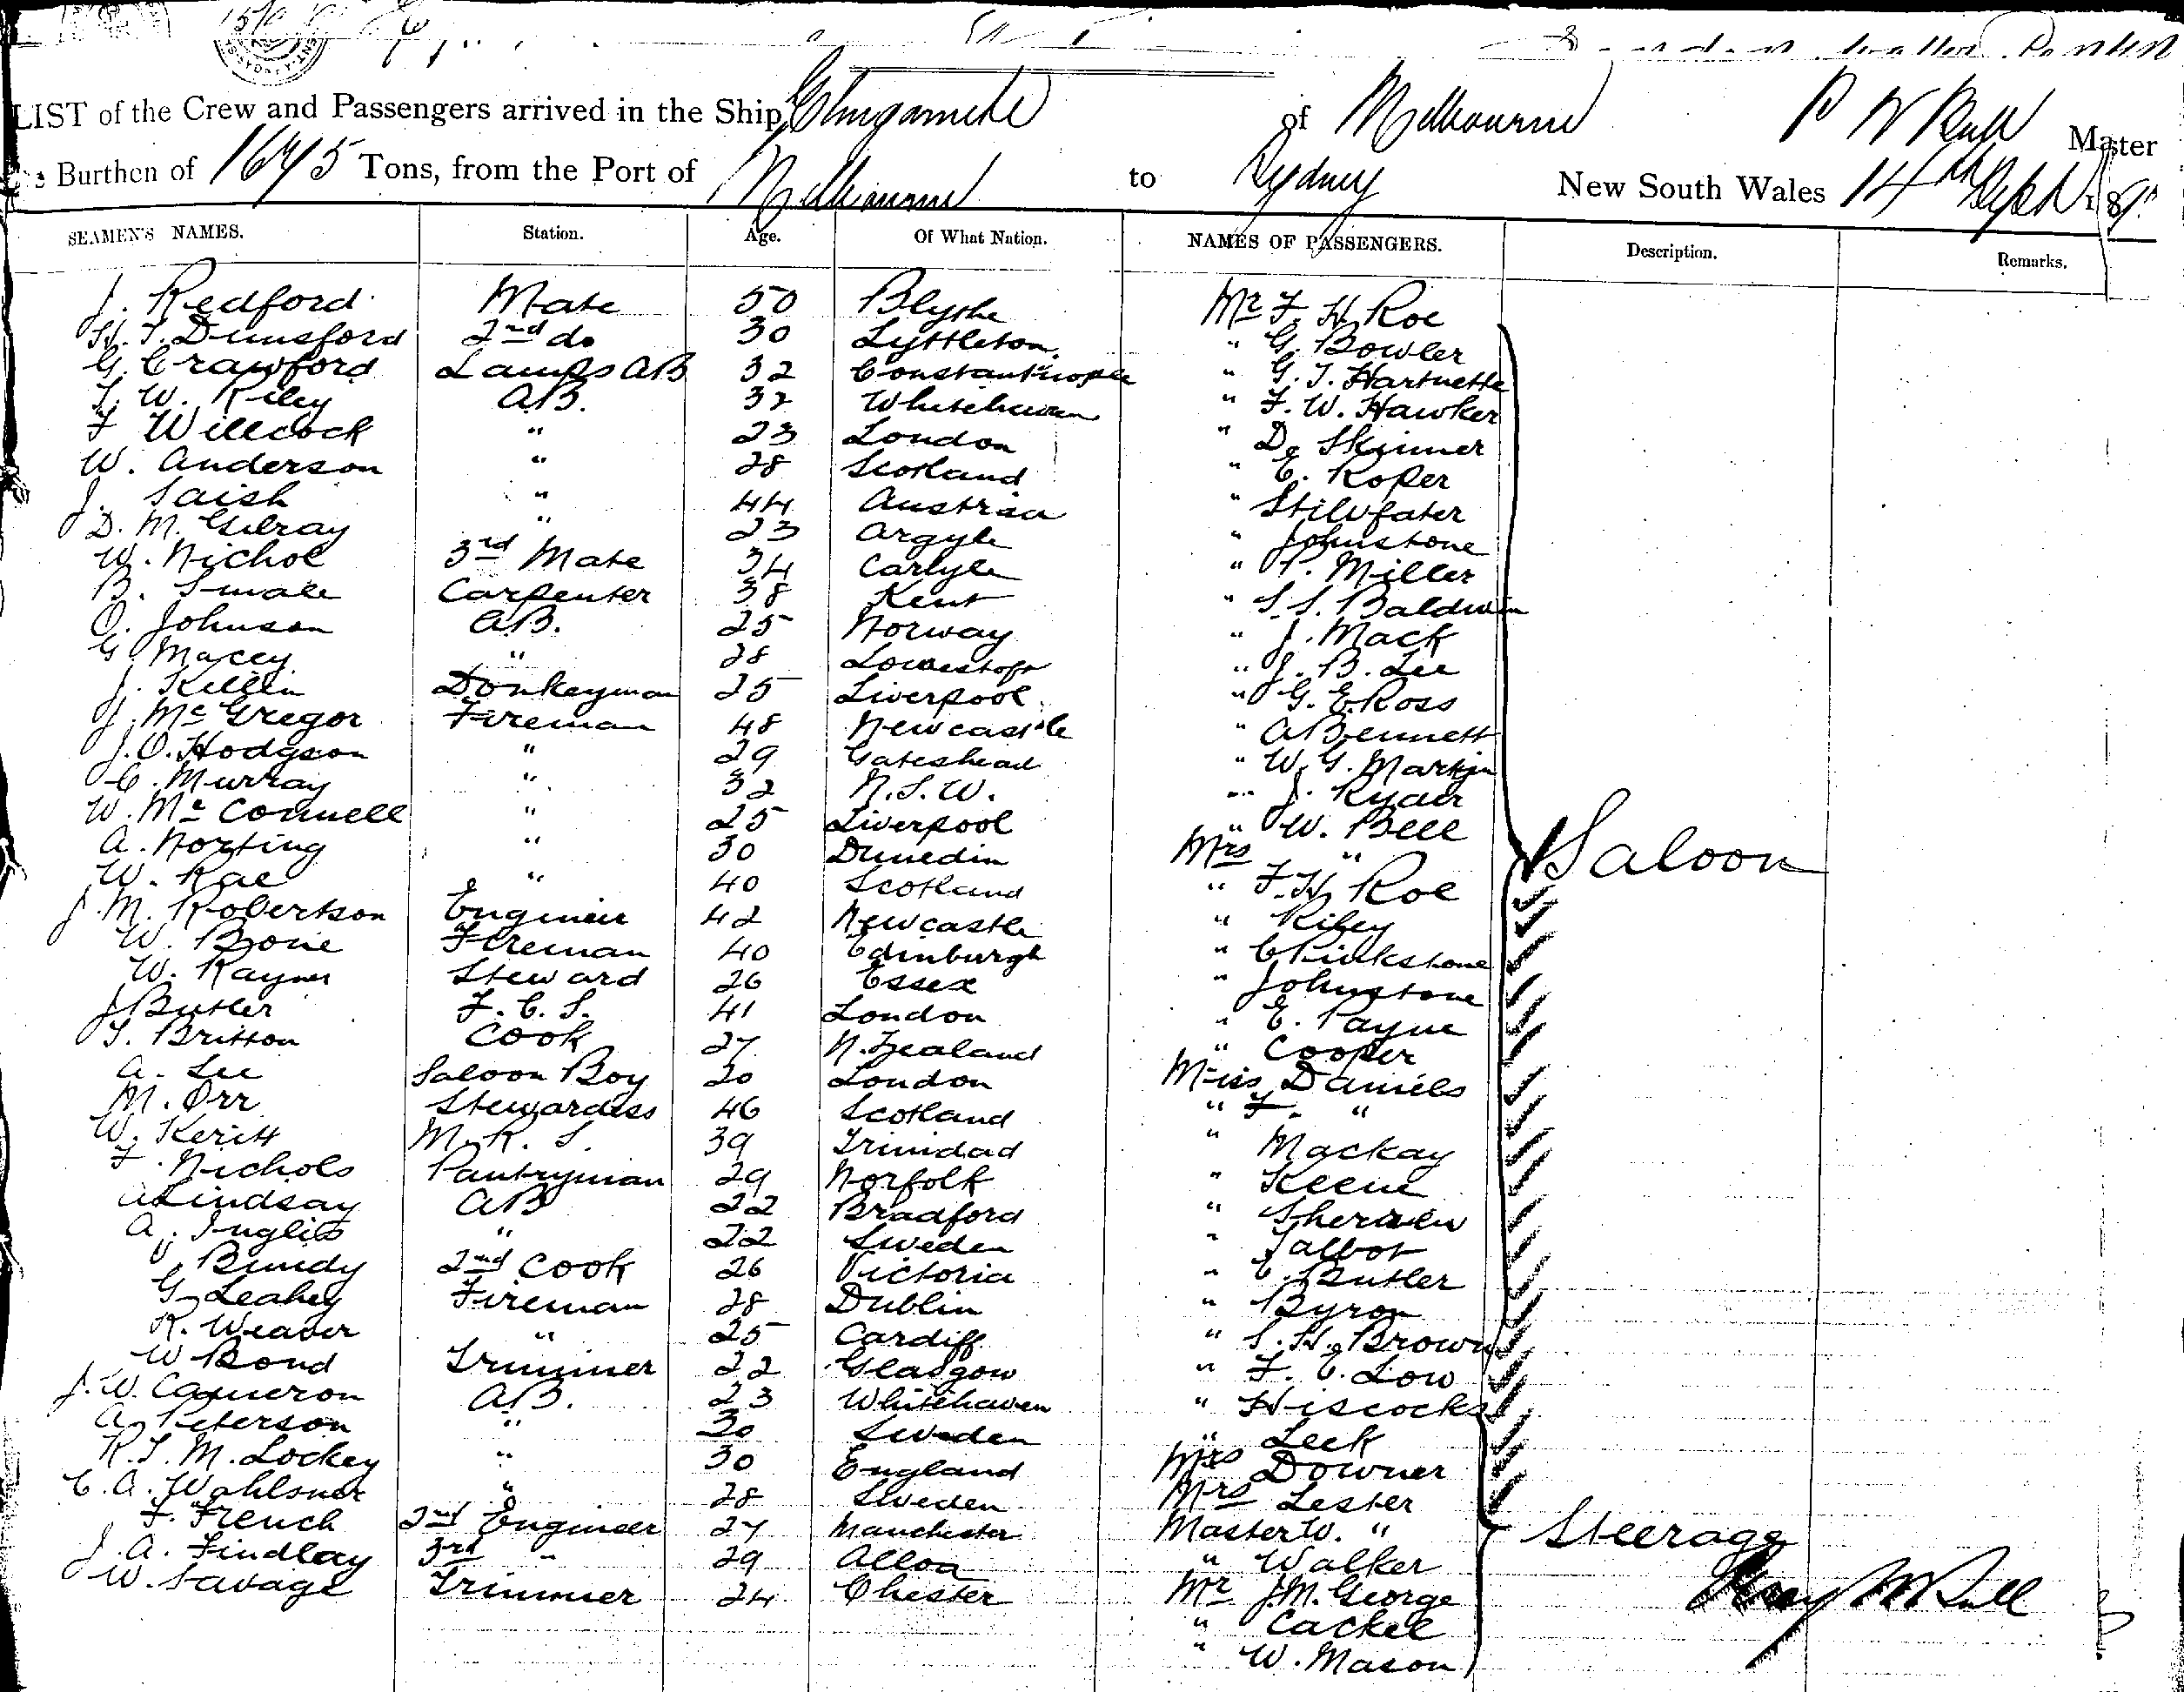 LIST of the Crew and Passengers arrived in the Ship Elingamite of Melbourne Master
Burthen of 1675 Tons, from the Port of Melbourne to Sydney New South Wales 14th Sept 189
SEAMEN'S NAMES. Station. Age. Of What Nation. NAMES OF PASSENGERS. Description. Remarks.
J. Redford Mate 50 Blythe Mr F. H. Roe
H. T. Dunsford 2nd do 30 Lyttleton. " G. Bowler
G. Crawford Lamps AB 32 Constantinople " G. T. Hartnette
T. W. Riley AB. 32 Whitehaven " F. W. Hawker
F Willcock " 23 London " D. Skinner
W. Anderson " 28 Scotland " E. Roper
J. Saish " 44 Austria "
D. M. Gilray " 23 Argyle " Johnstone
W. Nichol 3rd Mate 34 Carlyle " P. Miller
B. Smale Carpenter 38 Kent " S. S. Baldwin
O. Johnson AB. 25 Norway " J. Mack
G. Macey " 28 Lowestoft " J. B. Lee
J. Killin Donkeyman 25 Liverpool " G. E. Ross
J. Mc Gregor Fireman 48 Newcastle " A Bennett
J. O. Hodgson " 29 Gateshead " W. G. Martin
C. Murray " 32 N. S. W. " J. Ryan
W. Mc Connell " 25 Liverpool " W. Bell
A. Norting " 30 Dunedin Mrs " Saloon
W. Rae " 40 Scotland " F. H. Roe
J. M. Robertson Engineer 42 Newcastle " Riley
W. Bone Fireman 40 Edinburgh " Chinkstone
W. Rayner Steward 26 Essex " Johnstone
J Butler F. C. S. 41 London " E. Payne
T. Britton Cook 27 N. Zealand " Cooper
A. Lee Saloon Boy 20 London Miss Daniels
M. Orr Stewardess 46 Scotland " F. "
W. Keritt M. R. S. 39 Trinidad " Mackay
F. Nichols Pantryman 29 Norfolk " Keene
A Lindsay AB 22 Bradford "
A. Inglis " 22 Sweden " Talbot
J Bundy 2nd Cook 26 Victoria " C. Butler
G. Leahey Fireman 28 Dublin " Byron
R. Weaver " 25 Cardiff " S. H. Brown
W Bond Trimmer 22 Glasgow " F. E. Low
J. W. Cameron AB. 23 Whitehaven " Hiscocks
A. Peterson " 30 Sweden " Leck
R. T. M. Lockey " 30 England Mrs Downer
C. A. Wahlsner " 28 Sweden Mrs Lester
F. French 2nd Engineer 27 Manchester Master W. " Steerage
J. A. Findlay 3rd " 29 Alloa " Walker
W. Savage Trimmer 24 Chester Mr J. M. George
" Cackel
" W. Mason